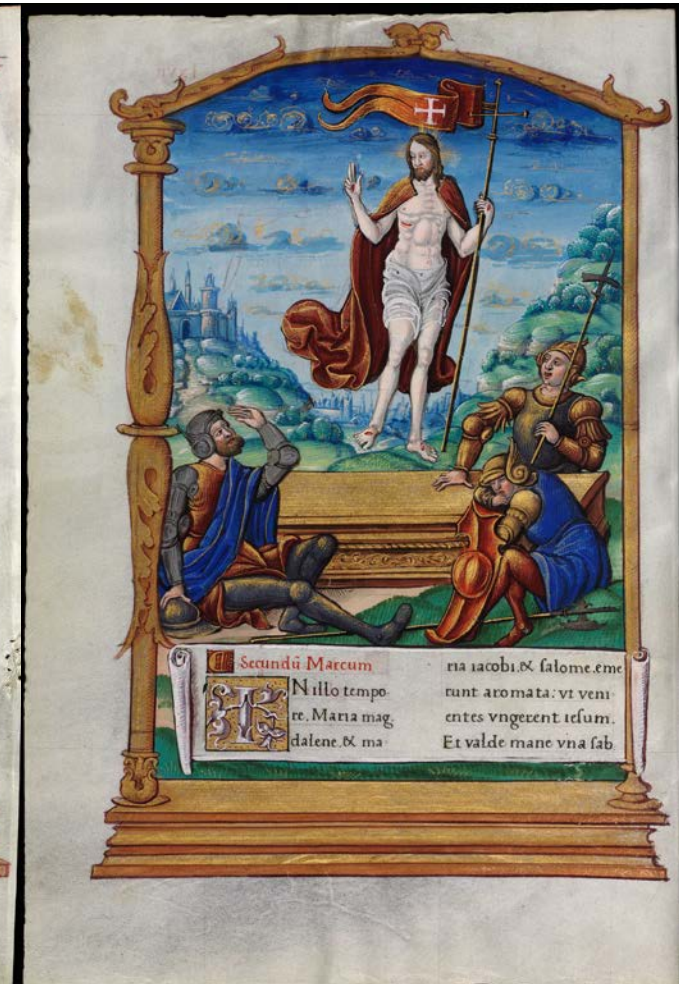 Secundū Marcum
IN illo tempo
re, Maria mag
dalene.& ma
ria iacobi.& salome.eme
runt aromata: vt veni
entes vngerent iesum.
Et valde mane vna sab